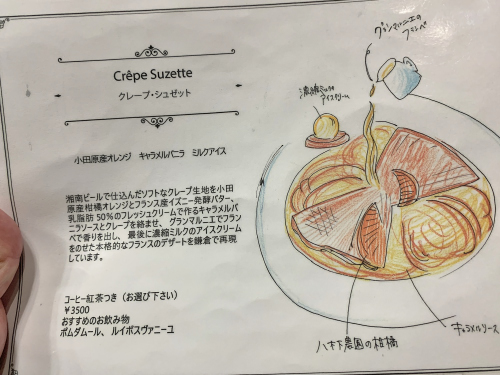 Crêpe Suzette
クレープ・シュゼット
小田原産オレンジ キャラメルバニラ ミルクアイス
湘南ビールで仕込んだソフトなクレープ生地を小田
原産柑橘オレンジとフランス産イズニー発酵バター、
乳脂肪50%のフレッシュクリームで作るキャラメルバ
ニラソースとクレープを絡ませ、グランマルニエでフラン
ベで香りを出し、最後に濃縮ミルクのアイスクリーム
をのせた本格的なフランスのデザートを鎌倉で再現
しています。
コーヒー紅茶つき（お選び下さい）
¥3500
おすすめのお飲み物
ポムダムール、ルイボスヴァニーユ
グランマルニエの
フランベ
濃縮ミルク
アイスクリーム
キャラメルソース
農園の柑橘